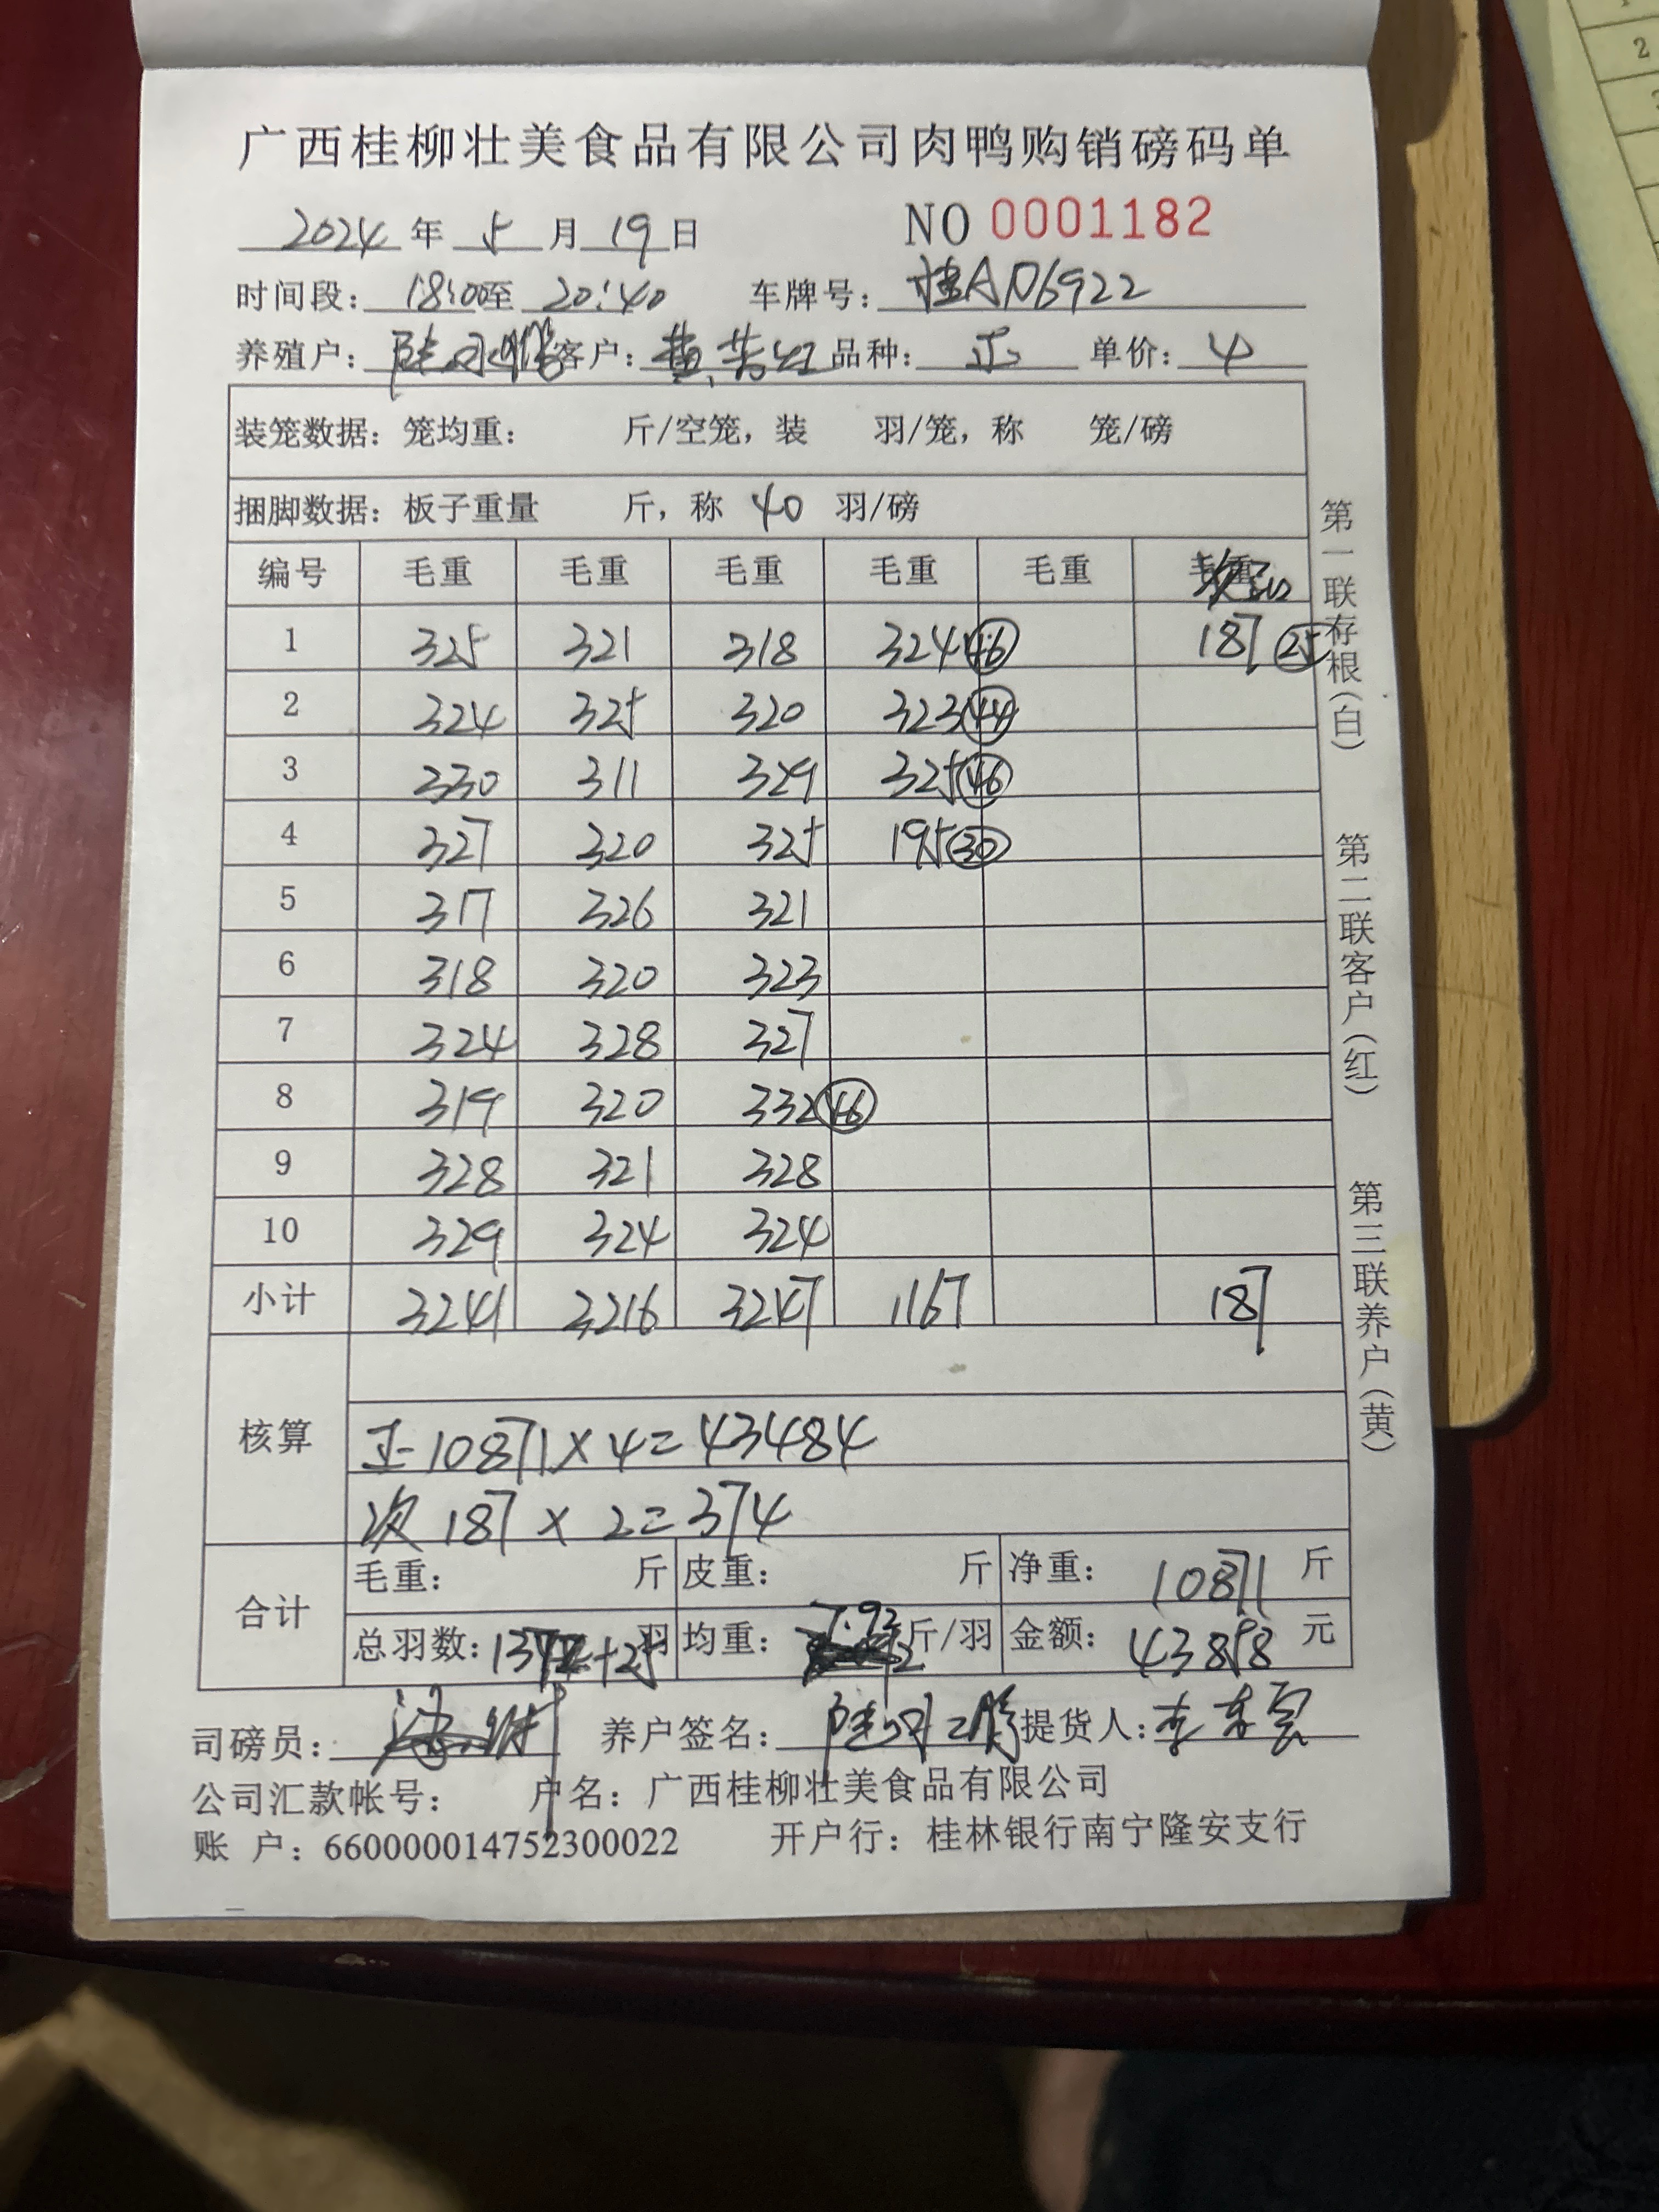 广西桂柳壮美食品有限公司肉鸭购销磅码单
2024 年 5 月 19 日 NO 0001182
时间段: 18:00 至 20:40 车牌号: 桂AD6922
养殖户: 客户: 黄 品种: 正 单价: 4
装笼数据: 笼均重: 斤/空笼, 装 羽/笼, 称 笼/磅
捆脚数据: 板子重量 斤, 称 40 羽/磅
编号 毛重 毛重 毛重 毛重 毛重 毛重
1 325 321 318 324 46 187 25
2 324 325 320 323 44
3 330 311 329 325 46
4 327 320 325 195 30
5 317 326 321
6 318 320 323
7 324 328 327
8 319 320 332 46
9 328 321 328
10 329 324 324
小计 3241 3216 3247 1167 187
核算
正 10871 × 4 = 43484
次 187 × 2 = 374
合计 毛重: 斤 皮重: 斤 净重: 10871 斤
总羽数: +25 羽 均重: 7.92 斤/羽 金额: 43858 元
司磅员: 养户签名: 提货人:
公司汇款帐号: 户名: 广西桂柳壮美食品有限公司
账 户: 660000014752300022 开户行: 桂林银行南宁隆安支行
第一联存根(白) 第二联客户(红) 第三联养户(黄)